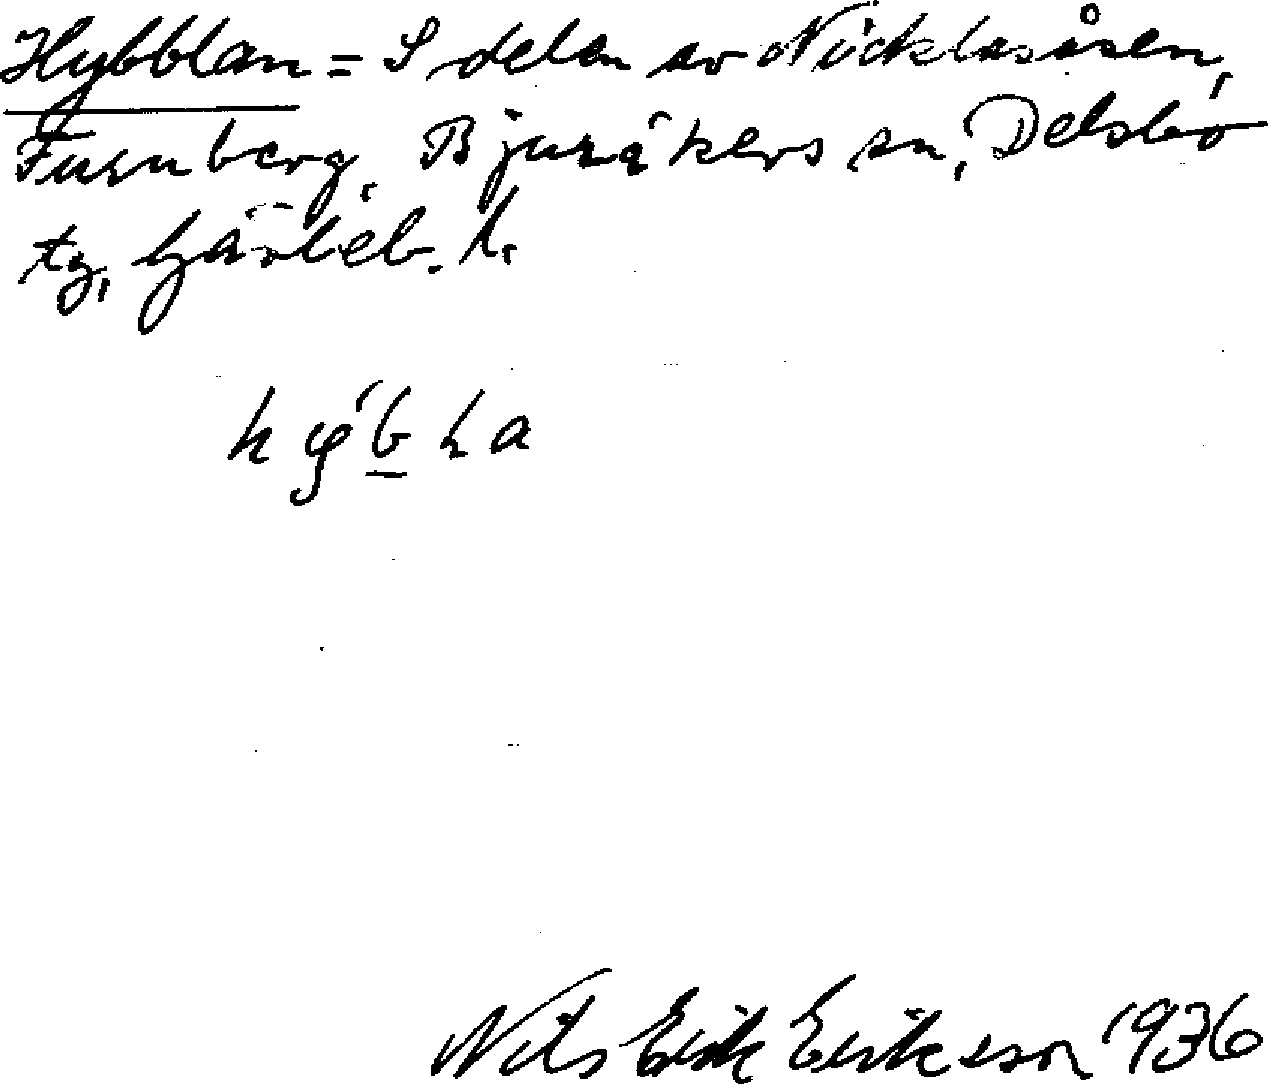 Hybblan = S delen av Nicklasåsen,
Furuberg, Bjuråkers sn, Delsbo
tg, Gävleb. l.
Nils Erik Eriksson 1936